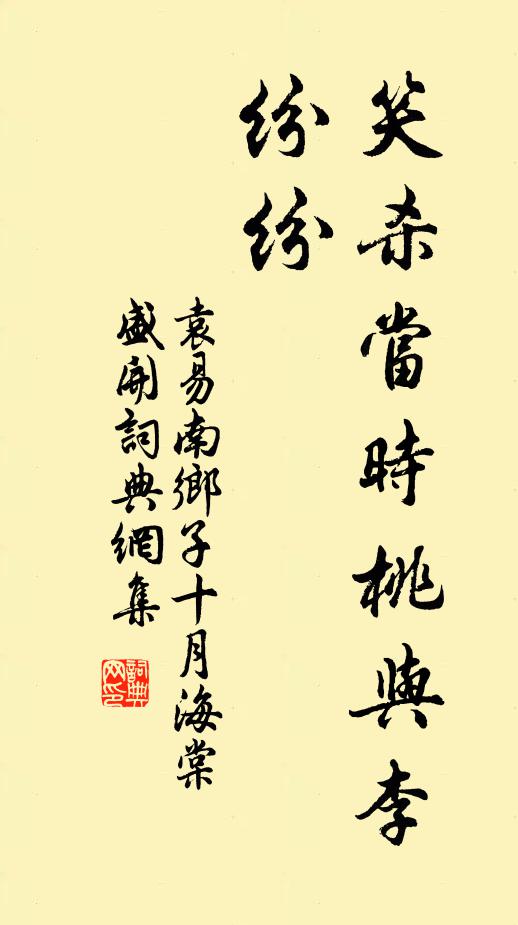 笑杀當時桃與李
纷纷
袁易南鄉子十月海棠
盛開詞典網集
詞典
网印